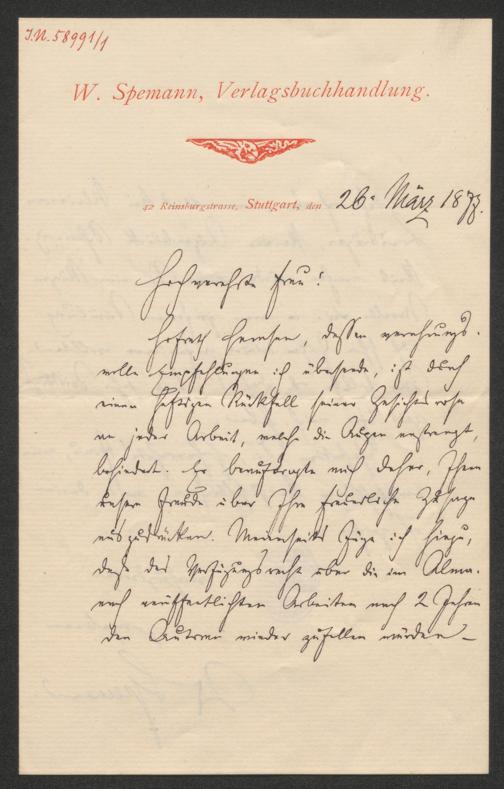 I.N. 58991/1
W. Spemann, Verlagsbuchhandlung.
42 Reinsburgstrasse, Stuttgart, den 26. März 1877.
Hochverehrte Frau!
Hofrath Hemsen, dessen verehrungs-
volle Empfehlungen ich übersende, ist durch
einen heftigen Rückfall seiner Gesichtsrose
an jeder Arbeit, welche die Augen anstrengt,
behindert. Er beauftragte mich daher, Ihnen
unsere Freude über Ihre freundliche Zusage
auszudrücken. Meinerseits füge ich hinzu,
daß das Verfügungsrecht über die im Alma-
nach veröffentlichten Arbeiten nach 2 Jahren
den Autoren wieder zufallen würden –